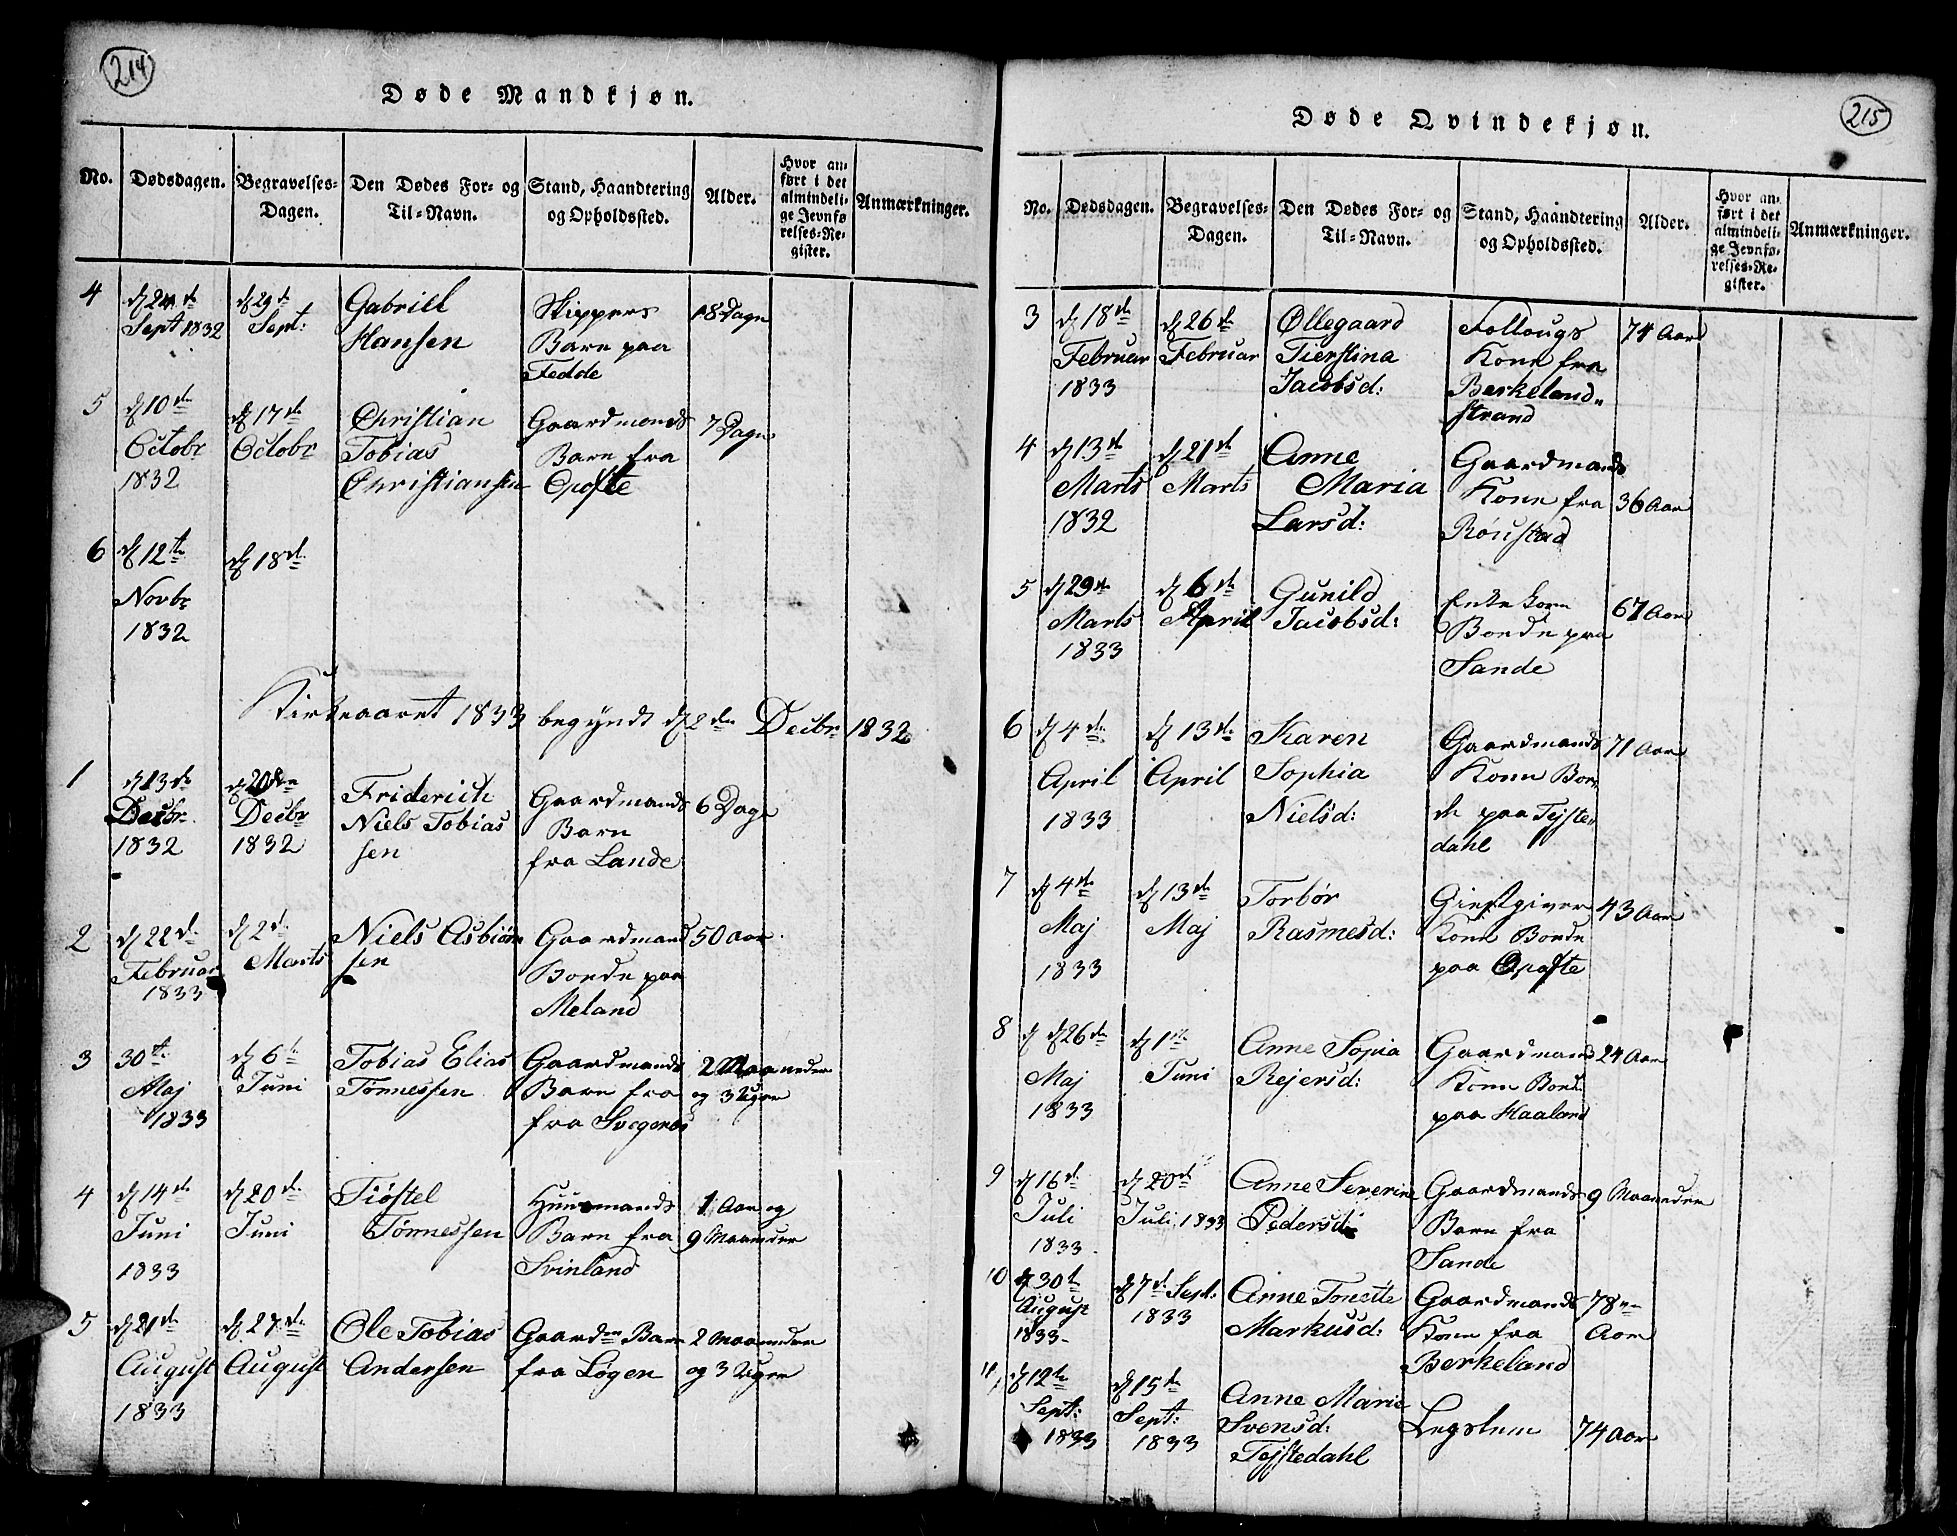 214
Døde Mandkjøn.
No.
Dødsdagen.
Begravelses-
Dagen.
Den Dødes For- og
Til-Navn.
Stand, Haandtering
og Opholdssted.
Alder.
Hvor an-
ført i det
almindeli-
ge Jevnfø
relses-Re-
gister.
Anmærkninger.
4
Sept 1832
d 29de
Sept:
Gabriell
Hansen
Skippers
Barn paa
Fedde
18 Dage
5
d 10de
Octobr
1832
d 17de
Octobr
Christian
Tobias
Christiansen
Gaardmands
Barn fra
Opofte
7 Dage
6
d 12te
Novbr
1832
d 18de
Kirkeaaret 1833 begyndt d 2den Decbr 1832
1
d 13de
Decbr
1832
d 20de
Decbr
1832
Friderich
Niels Tobias
sen
Gaardmands
Barn
fra Lande
6 Dage
2
d 22de
Februar
1833
d 2de
Marts
Niels Asbiøn
sen
Gaardmand
Boende paa
Meland
50 Aar
3
30te
Maj
1833
d 6te
Juni
Tobias Elias
Tønnessen
Gaardmands
Barn fra
fra Svegenes
2 Maaneder
og 3 Uger
4
d 14de
Juni
1833
d 20de
Juni
Tiøstel
Tønnessen
Huusmands
Barn fra
Svinland
1 Aar og
9 Maaneder
5
d 21de
August
1833
d 27de
August
Ole Tobias
Andersen
Gaardm Barn
fra Løgen
2 Maaneder
og 3 Uger
215
Døde Qvindekjøn.
No.
Dødsdagen.
Begravelses-
Dagen.
Den Dødes For- og
Til-Navn.
Stand, Haandtering
og Opholdssted.
Alder.
Hvor an-
ført i det
almindeli-
ge Jevnfø-
relses-Re-
gister.
Anmærkninger.
3
d 18de
Februar
1833
d 26de
Februar
Øllegaard
Tierstina
Jacobsd:
Follougs
Kone fra
Berkeland-
strand
74 Aar
4
d 13de
Marts
1832
d 21de
Marts
Anne
Maria
Larsd:
Gaardmands
Kone fra
Rønstad
36 Aar
5
d 29de
Marts
1833
d 6te
April
Gunild
Jacobsd:
Enkekone
Boende paa
Sande
67 Aar
6
d 4de
April
1833
d 13de
April
Karen
Sophia
Nielsd:
Gaardmands
Kone Boen
de paa Tejste-
dahl
71 Aar
7
d 4de
Maj
1833
d 13de
Maj
Torbør
Rasmesd:
Giestgiver
Kone Boende
paa Opofte
43 Aar
8
d 26de
Maj
1833
d 1ste
Juni
Anne Sopia
Rejersd:
Gaardmands
Kone Boende
paa Haaland
24 Aar
9
d 16de
Juli
1833
d 20de
Juli 1833
Anne Severine
Pedersd:
Gaardmands
Barn fra
Sande
9 Maaneder
10
d 30te
August
1833
d 7de Sept:
1833
Anne Tonette
Markusd:
Gaardmands
Kone fra
Berkeland
78
Aar
11
d 12te
Sept:
1833
d 15de
Sept:
1833
Anne Marie
Svensd:
Tejstedahl
Legslem
74 Aar